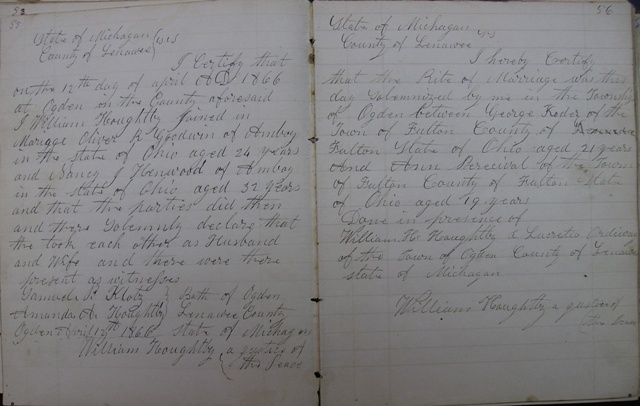 52
State of Michagan } ss
County of Lenawee }
I Certify that
on the 12th day of april AD 1866
at Ogden in the County aforesaid
I William Houghtby Joined in
Marigge Oliver R Goodwin of Amboy
in the state of Ohio aged 24 years
and Nancy J Henwood of Amboy
in the state of Ohio aged 32 years
and that the parties did then
and there Solemnly declare that
the took each other as Husband
and Wife and there were there
present as witnesses
Samuel Klotz } Both of Ogden
Amanda A Houghtby } Lenawee County
Ogden April 12th 1866 state of Michagan
William Houghtby { a justice of
the Peace
56
State of Michagan } ss
County of Lenawee
I hereby Certify
that the Rite of Marriage was this
day Solemnized by me in the Township
of Ogden between George Roder of the
Town of Fulton County of
Fulton State of Ohio aged 21 years
And Ann Percival of the Town
of Fulton County of Fulton State
of Ohio aged 19 years
Done in presence of
William H. Houghtby & Lucretia Ordway
of the Town of Ogden County of Lenawee
state of Michagan
William Houghtby a justice of
the Peace